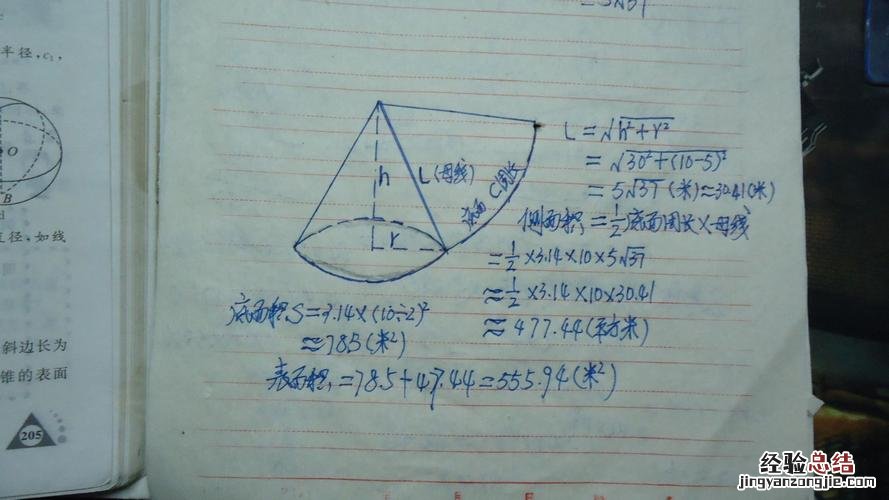 =5√37
半径,c₁,
O
B
直径、如线
斜边长为
锥的表面
205
h
L(母线)
底面C周长
r
L=√h²+r²
=√30²+(10-5)²
=5√37(米)≈30.41(米)
侧面积=½底面周长×母线
=½×3.14×10×5√37
≈½×3.14×10×30.41
≈477.44(平方米)
底面积S=3.14×(10÷2)²
≈78.5(米²)
表面积=78.5+477.44=555.94(米²)
经验总结
jingyanzongjie.com